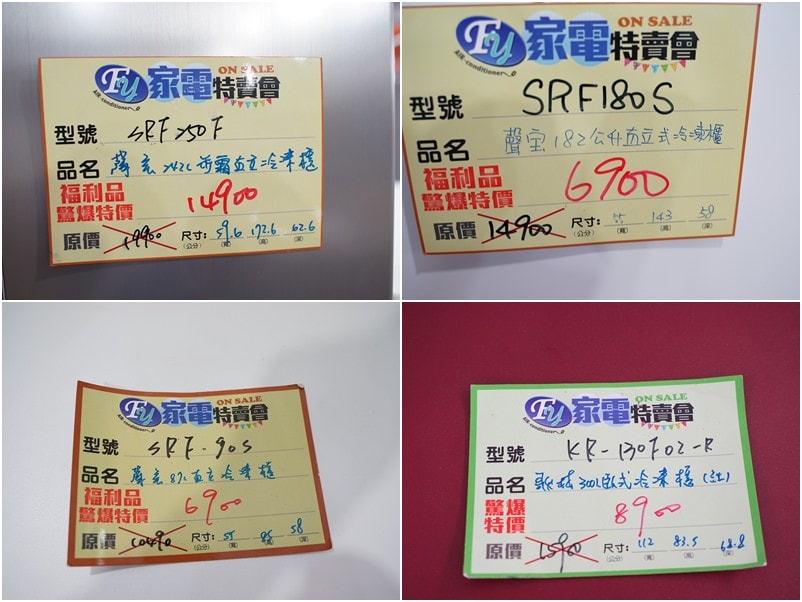 ON SALE
Fy 家電特賣會
Air-conditioner
型號 SRF250F
品名 聲宝 242L 無霜直立冷凍櫃
福利品
驚爆特價 14900
原價 19900 尺寸: 59.6 172.6 62.6
(公分) (寬) (高) (深)
ON SALE
Fy 家電特賣會
Air-conditioner
型號 SRF180S
品名 聲宝182公升直立式冷凍櫃
福利品
驚爆特價 6900
原價 14900 尺寸: 55 143 58
(公分) (寬) (高) (深)
ON SALE
Fy 家電特賣會
Air-conditioner
型號 SRF-90S
品名 聲宝 直立冷凍櫃
福利品
驚爆特價 6900
原價 10490 尺寸: 55 58
(公分) (寬) (高) (深)
ON SALE
Fy 家電特賣會
Air-conditioner
型號 KR-130F02-R
品名 歌林300L臥式冷凍櫃(紅)
驚爆
特價 8900
原價 15900 尺寸: 112 83.5 68.8
(公分) (寬) (高) (深)